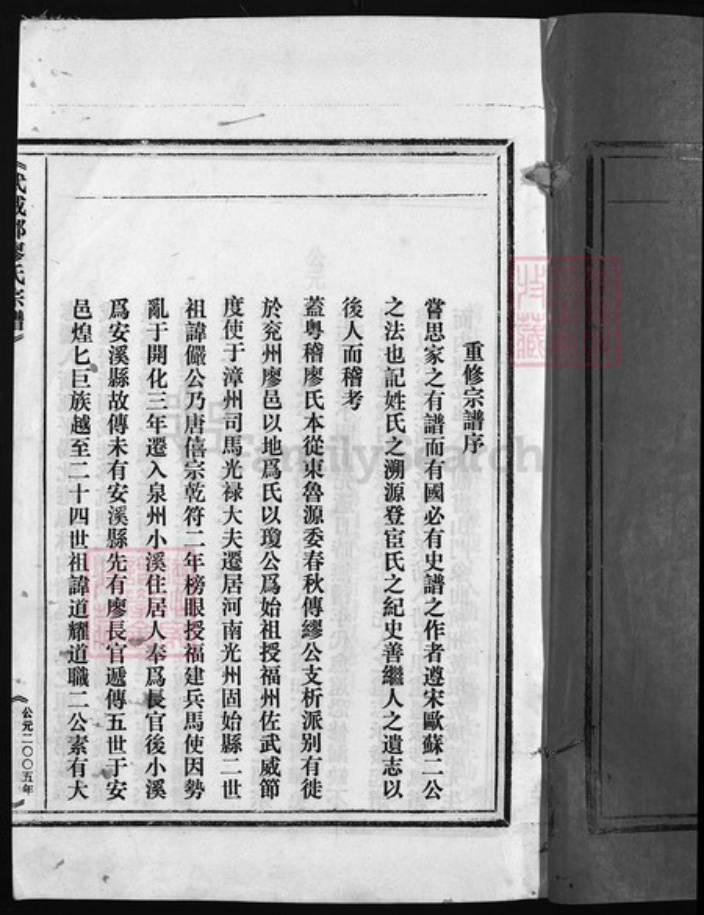 重修宗譜序
嘗思家之有譜而有國必有史譜之作者遵宋歐蘇二公
之法也記姓氏之溯源登宦氏之紀史善繼人之遺志以
後人而稽考
蓋粤稽廖氏本從東魯源委春秋傳繆公支析派別有徙
於兖州廖邑以地爲氏以瓊公爲始祖授福州佐武威節
度使于漳州司馬光禄大夫遷居河南光州固始縣二世
祖諱儼公乃唐僖宗乾符二年榜眼授福建兵馬使因勢
亂于開化三年遷入泉州小溪住居人奉爲長官後小溪
爲安溪縣故傳未有安溪縣先有廖長官遞傳五世于安
邑煌匕巨族越至二十四世祖諱道耀道職二公素有大
《武威郡廖氏宗譜》
《公元二〇〇五年》
FamilySearch